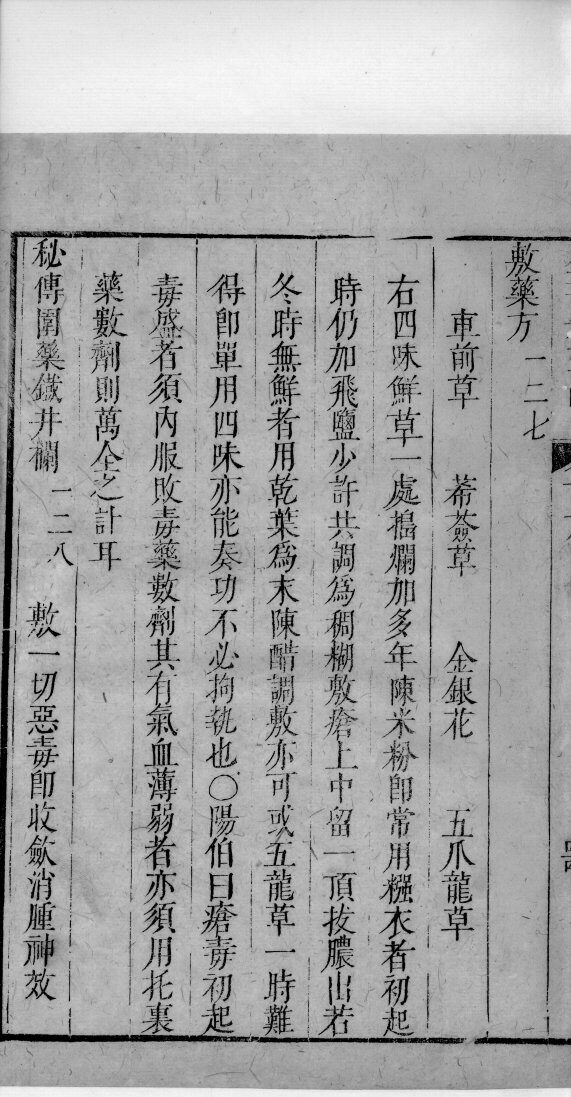 敷藥方 一二七
車前草 莃薟草 金銀花 五爪龍草
右四味鮮草一處搗爛加多年陳米粉卽常用糨衣者初起
時仍加飛鹽少許共調爲稠糊敷瘡上中留一頂拔膿出若
冬時無鮮者用乾葉爲末陳醋調敷亦可或五龍草一時難
得卽單用四味亦能奏功不必拘執也〇陽伯曰瘡毒初起
毒盛者須內服敗毒藥數劑其有氣血薄弱者亦須用托裏
藥數劑則萬全之計耳
秘傳圍藥鐵井欄 一二八 敷一切惡毒卽收斂消腫神效